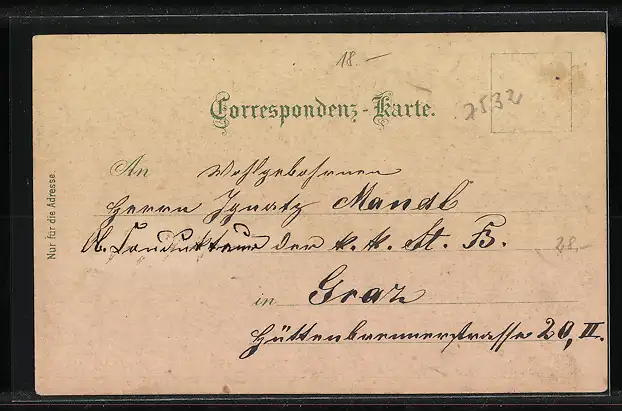 18.-
Correspondenz-Karte.
2532
An Wohlgebohrnen
Herrn Ignatz Mandl
Ob. Condukteur der k. k. St. B.
28,-
in Graz
Hüttenbrennerstrasse 20, II.
Nur für die Adresse.